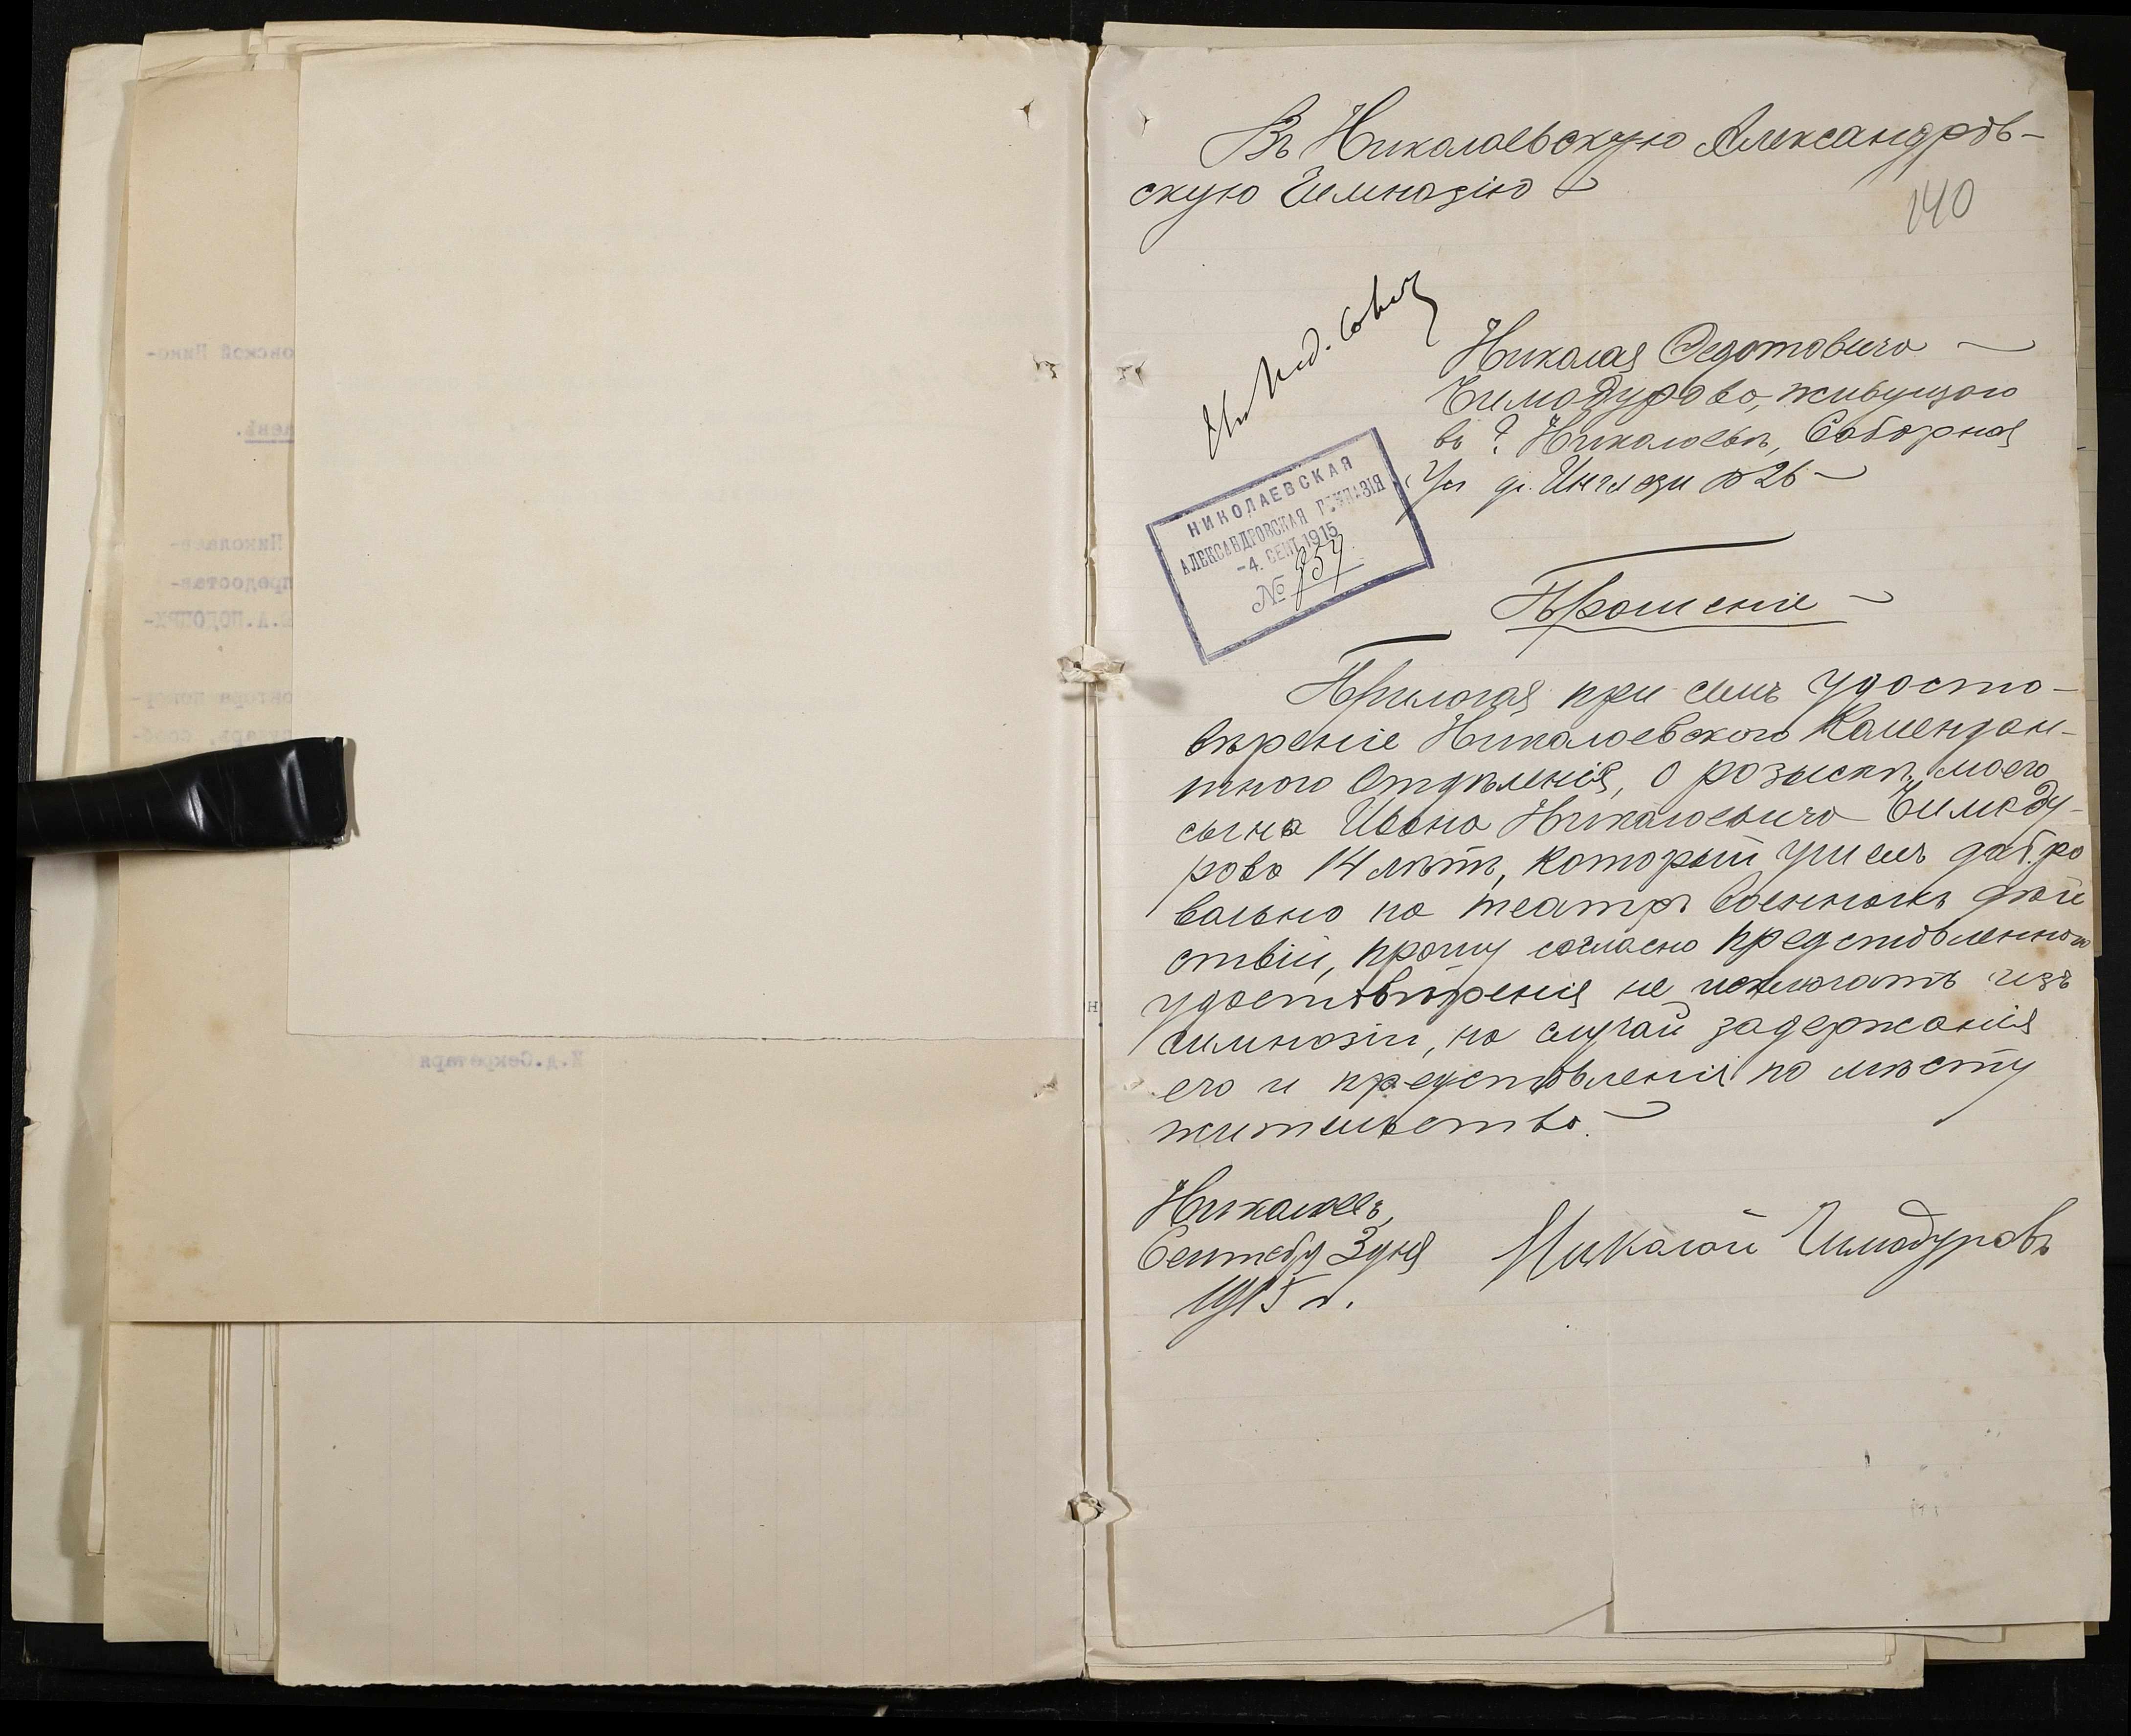 Въ Николаевскую Александров-
скую Гимназію
140
На Пед. Совѣт
Николая Федотовича
Чимодурова, живущаго
въ г. Николаевѣ, Соборная
Ул д. Инглези № 26
НИКОЛАЕВСКАЯ
АЛЕКСАНДРОВСКАЯ ГИМНАЗІЯ
-4. СЕНТ. 1915
№
Прошеніе
Прилагая при семъ удосто-
вѣреніе Николаевского Камендан-
тного Отдѣленія, о розыскѣ моего
сына Ивана Николаевича Чимоду-
рова 14 лѣтъ, который ушелъ добро
вольно на театръ военныхъ дѣй
ствій, прошу согласно представленного
удостовѣренія не исключать изъ
гимназіи, на случай задержанія
его и представленія по мѣсту
жительства.
Николаевъ,
Сентябр 3 дня
1915 г.
Николай Чимодуровъ
онской Нико-
день.
Николаев-
предостав-
И.д.Секретаря